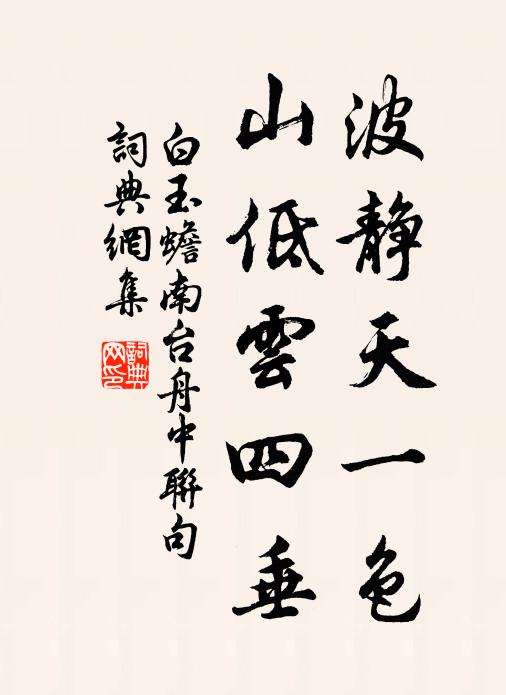 波靜天一色
山低雲四垂
白玉蟾南台舟中聯句
詞典網集
詞典網印